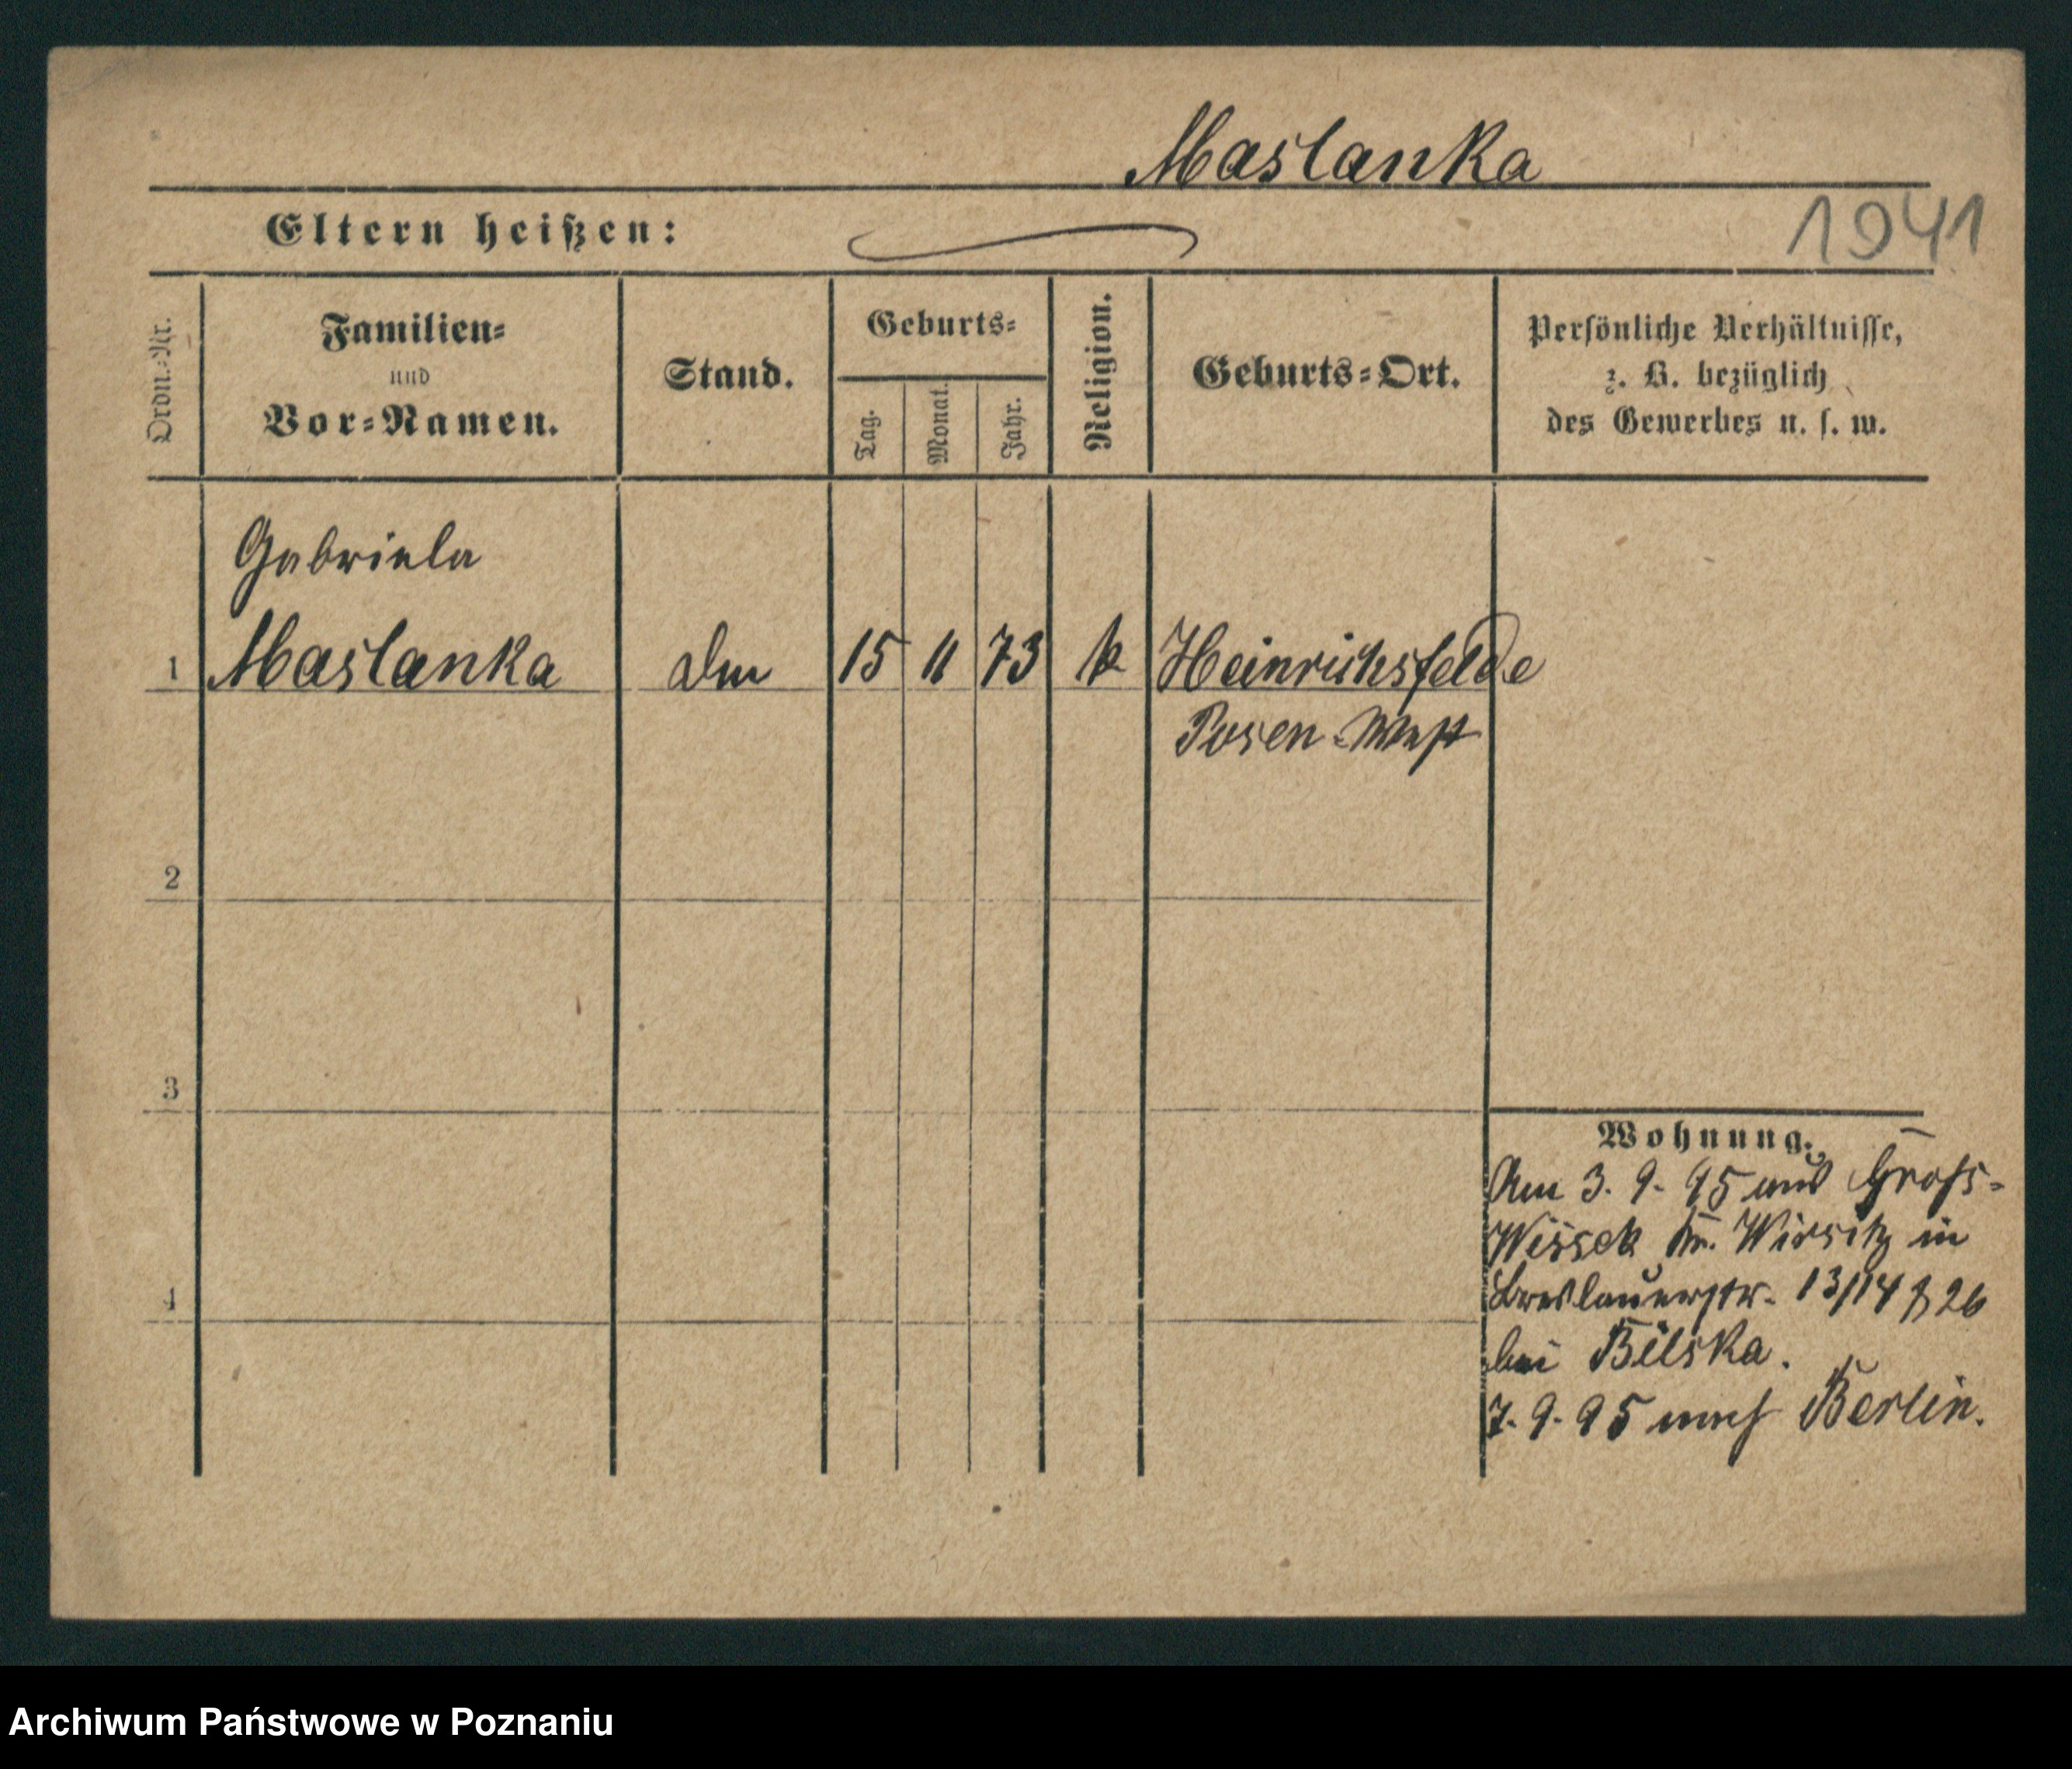 Maslanka
Eltern heißen:
1941
Ordn.-Nr.
Familien-
und
Vor-Namen.
Stand.
Geburts-
Tag.
Monat.
Jahr.
Religion.
Geburts-Ort.
Persönliche Verhältnisse,
z. B. bezüglich
des Gewerbes u. s. w.
Gabriela
1 Maslanka 15 11 73 k Heinrichsfelde
Posen-West
2
3
4
Wohnung.
Am 3. 9. 95 aus Groß-
Wissek Kr. Wirsitz in
Breslauerstr. 13/14 26
bei Bilska.
7. 9. 95 nach Berlin.
Archiwum Państwowe w Poznaniu